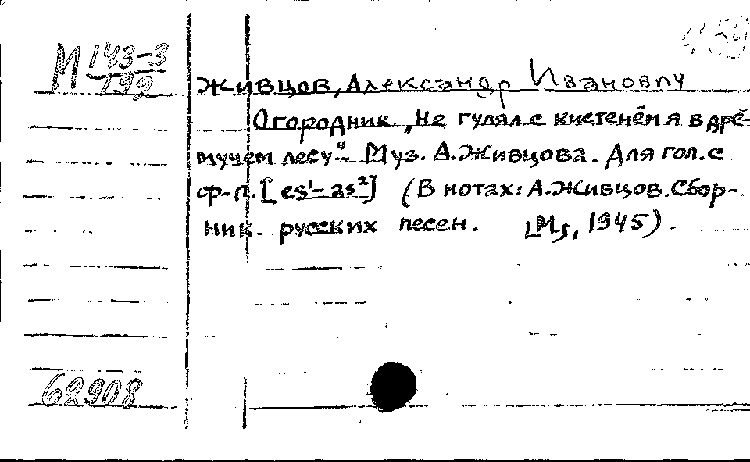 М 143-3
192
Живцов, Александр Иванович
Огородник „Не гулял с кистенём я в дре-
мучем лесу". Муз. А.Живцова. Для гол. с
ф-п. [es¹-as²] (В нотах: А.Живцов. Сбор-
ник русских песен. [М., 1945).
62908